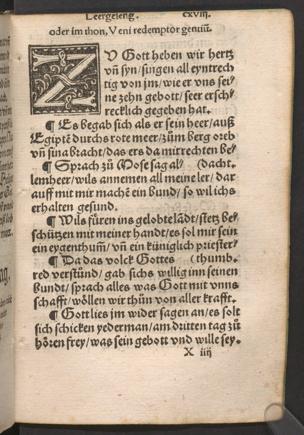 Leergeseng. cxviij.
oder im thon, Veni redemptor gentiū.
ZV Gott heben wir hertz
vn̄ syn / singen all eyntrech
tig von jm / wie er vns sei⸗
ne zehn gebott / seer ersch⸗
recklich gegeben hat.
¶ Es begab sich als er sein heer / auß
Egiptē durchs rote meer / zům berg oreb
vn̄ sina bracht / das ers da mit rechten be⸗
¶ Sprach zů Mose sag al (dacht.
lemheer / wils annemen all meine ler / dar
auff mit mir machē ein bund / so wil ichs
erhalten gesund.
¶ Wils füren ins gelobte lādt / stetz be⸗
schützen mit meiner handt / es sol mir sein
ein eygenthum / vn̄ ein küniglich priester⸗
¶ Da das volck Gottes (thumb.
red verstünd / gab sichs willig inn seinen
Bundt / sprach alles was Gott mit vnns
schafft / wöllen wir thün von aller krafft.
¶ Gott lies jm wider sagen an / es solt
sich schicken yederman / am dritten tag zů
hören frey / was sein gebott vnd wille sey.
X iiij